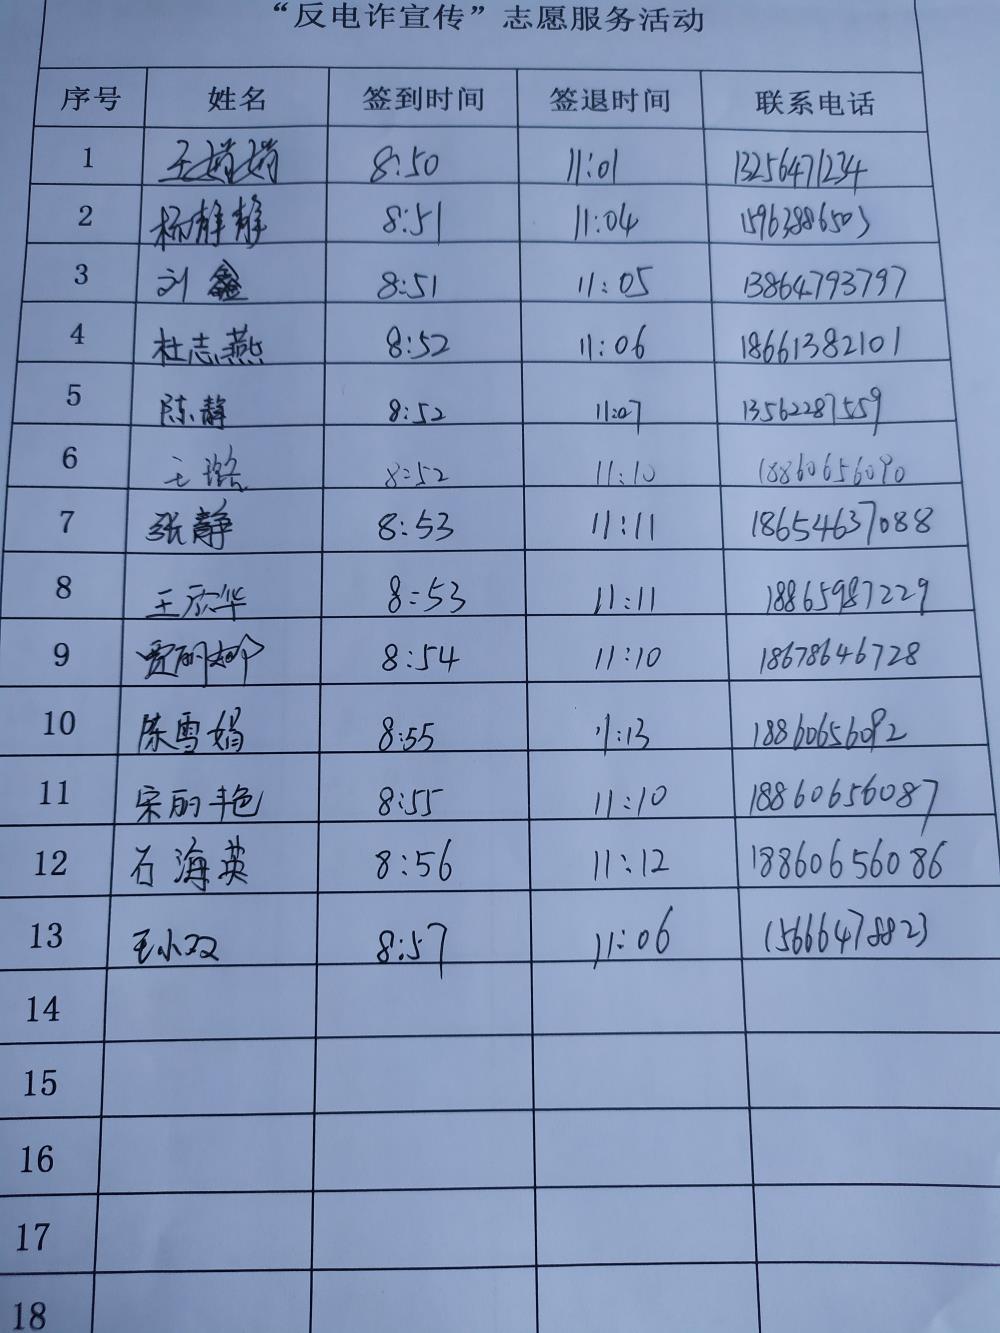 “反电诈宣传”志愿服务活动
序号 姓名 签到时间 签退时间 联系电话
1 王婧婧 8:50 11:01 13256471234
2 杨静静 8:51 11:04 15963886503
3 刘鑫 8:51 11:05 13864793797
4 杜志燕 8:52 11:06 18661382101
5 陈静 8:52 11:07 13562287559
6 王 8:52 11:10 18860656090
7 张静 8:53 11:11 18654637088
8 王欣华 8:53 11:11 18865987229
9 贾丽娜 8:54 11:10 18678646728
10 陈雪娟 8:55 11:13 18860656092
11 宋丽艳 8:55 11:10 18860656087
12 石海英 8:56 11:12 18860656086
13 王小双 8:57 11:06 15666478823
14
15
16
17
18